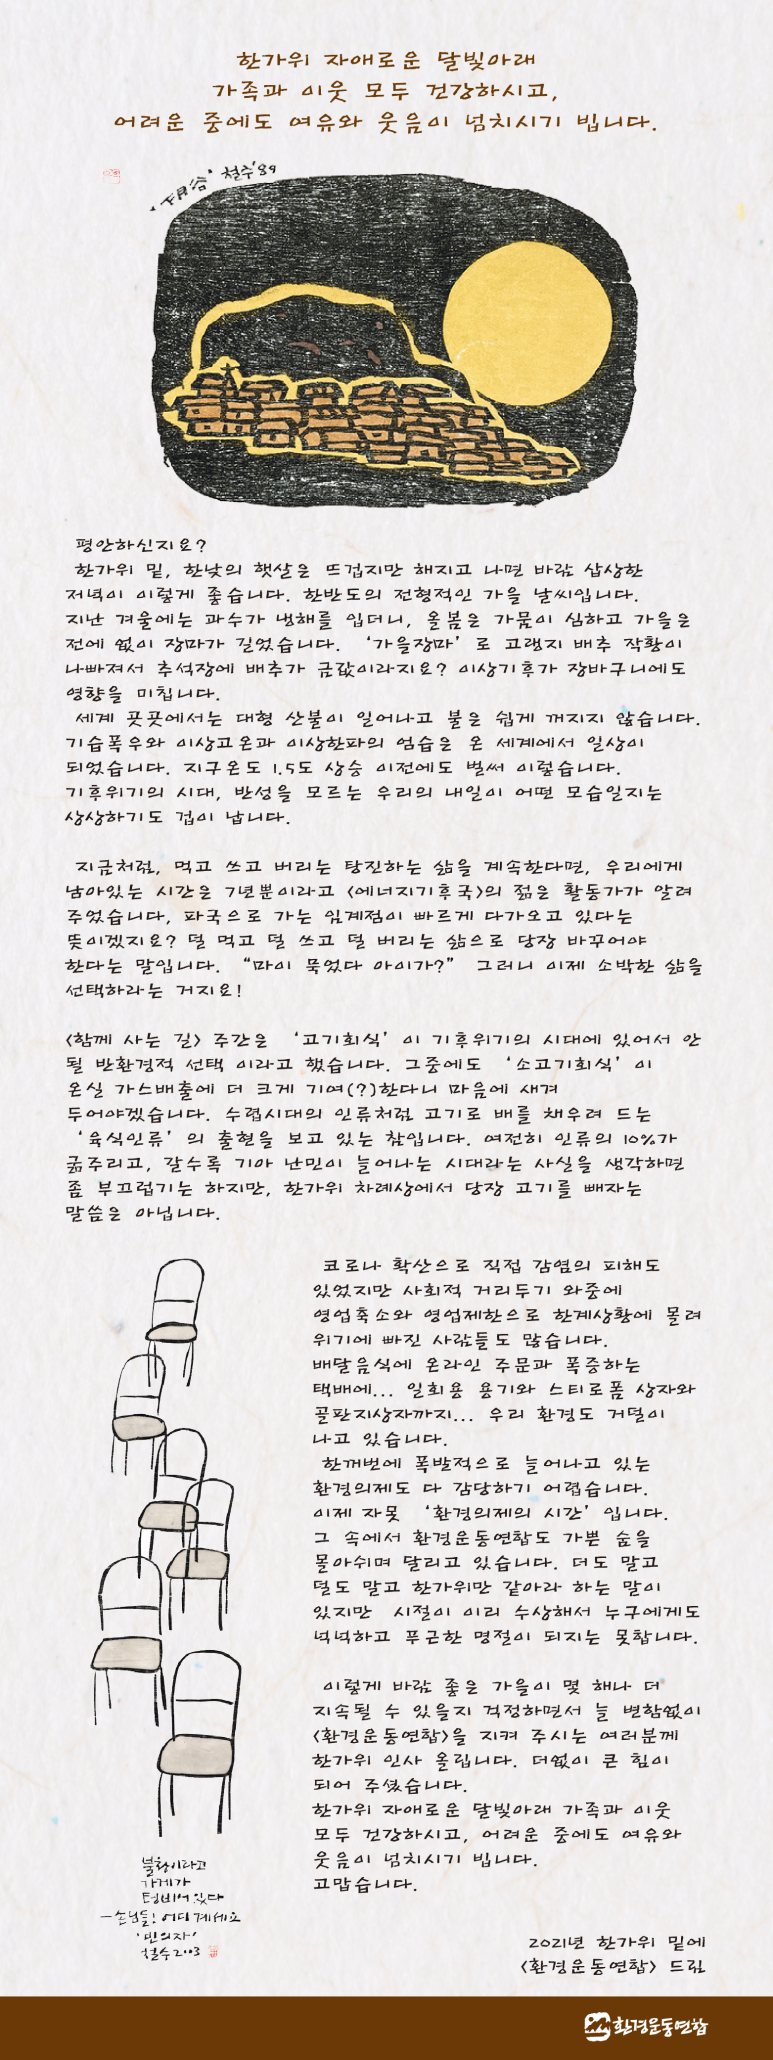 한가위 자애로운 달빛아래
가족과 이웃 모두 건강하시고,
어려운 중에도 여유와 웃음이 넘치시기 빕니다.
철수'89
평안하신지요?
한가위 밑, 한낮의 햇살은 뜨겁지만 해지고 나면 바람 삽상한
저녁이 이렇게 좋습니다. 한반도의 전형적인 가을 날씨입니다.
지난 겨울에는 과수가 냉해를 입더니, 올봄은 가뭄이 심하고 가을은
전에 없이 장마가 길었습니다. '가을장마'로 고랭지 배추 작황이
나빠져서 추석장에 배추가 금값이라지요? 이상기후가 장바구니에도
영향을 미칩니다.
세계 곳곳에서는 대형 산불이 일어나고 불은 쉽게 꺼지지 않습니다.
기습폭우와 이상고온과 이상한파의 엄습은 온 세계에서 일상이
되었습니다. 지구온도 1.5도 상승 이전에도 벌써 이렇습니다.
기후위기의 시대, 반성을 모르는 우리의 내일이 어떤 모습일지는
상상하기도 겁이 납니다.
지금처럼, 먹고 쓰고 버리는 탕진하는 삶을 계속한다면, 우리에게
남아있는 시간은 7년뿐이라고 <에너지기후국>의 젊은 활동가가 알려
주었습니다, 파국으로 가는 임계점이 빠르게 다가오고 있다는
뜻이겠지요? 덜 먹고 덜 쓰고 덜 버리는 삶으로 당장 바꾸어야
한다는 말입니다. "마이 묵었다 아이가?" 그러니 이제 소박한 삶을
선택하라는 거지요!
<함께 사는 길> 주간은 '고기회식'이 기후위기의 시대에 있어서 안
될 반환경적 선택 이라고 했습니다. 그중에도 '소고기회식'이
온실 가스배출에 더 크게 기여(?)한다니 마음에 새겨
두어야겠습니다. 수렵시대의 인류처럼 고기로 배를 채우려 드는
'육식인류'의 출현을 보고 있는 참입니다. 여전히 인류의 10%가
굶주리고, 갈수록 기아 난민이 늘어나는 시대라는 사실을 생각하면
좀 부끄럽기는 하지만, 한가위 차례상에서 당장 고기를 빼자는
말씀은 아닙니다.
코로나 확산으로 직접 감염의 피해도
있었지만 사회적 거리두기 와중에
영업축소와 영업제한으로 한계상황에 몰려
위기에 빠진 사람들도 많습니다.
배달음식에 온라인 주문과 폭증하는
택배에... 일회용 용기와 스티로폼 상자와
골판지상자까지... 우리 환경도 거덜이
나고 있습니다.
한꺼번에 폭발적으로 늘어나고 있는
환경의제도 다 감당하기 어렵습니다.
이제 자못 '환경의제의 시간'입니다.
그 속에서 환경운동연합도 가쁜 숨을
몰아쉬며 달리고 있습니다. 더도 말고
덜도 말고 한가위만 같아라 하는 말이
있지만 시절이 이리 수상해서 누구에게도
넉넉하고 푸근한 명절이 되지는 못합니다.
이렇게 바람 좋은 가을이 몇 해나 더
지속될 수 있을지 걱정하면서 늘 변함없이
<환경운동연합>을 지켜 주시는 여러분께
한가위 인사 올립니다. 더없이 큰 힘이
되어 주셨습니다.
한가위 자애로운 달빛아래 가족과 이웃
모두 건강하시고, 어려운 중에도 여유와
웃음이 넘치시기 빕니다.
고맙습니다.
불황이라고
가게가
텅비어 있다
―손님들! 어디 계세요
'빈의자'
철수2003
2021년 한가위 밑에
<환경운동연합> 드림
환경운동연합